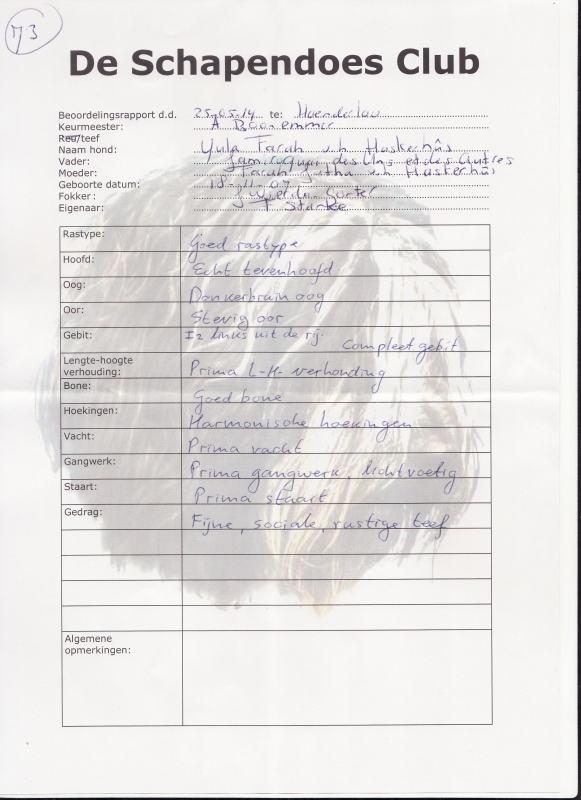 73
De Schapendoes Club
Beoordelingsrapport d.d. 25-05-14 te: Hoenderloo
Keurmeester: A
Reu/teef
Naam hond: Yula Farah v.h. Haskerhûs
Vader: Jamiroquai des Uns et des Autres
Moeder: Farah v.h. Haskerhûs
Geboorte datum:
Fokker:
Eigenaar: Starke
Rastype: Goed rastype
Hoofd: Echt tevenhoofd
Oog: Donkerbruin oog
Oor: Stevig oor
Gebit: I2 links uit de rij.
Compleet gebit
Lengte-hoogte
verhouding: Prima L-H- verhouding
Bone: Goed bone
Hoekingen: Harmonische hoekingen
Vacht: Prima vacht
Gangwerk: Prima gangwerk, lichtvoetig
Staart: Prima staart
Gedrag: Fijne, sociale, rustige teef
Algemene
opmerkingen: